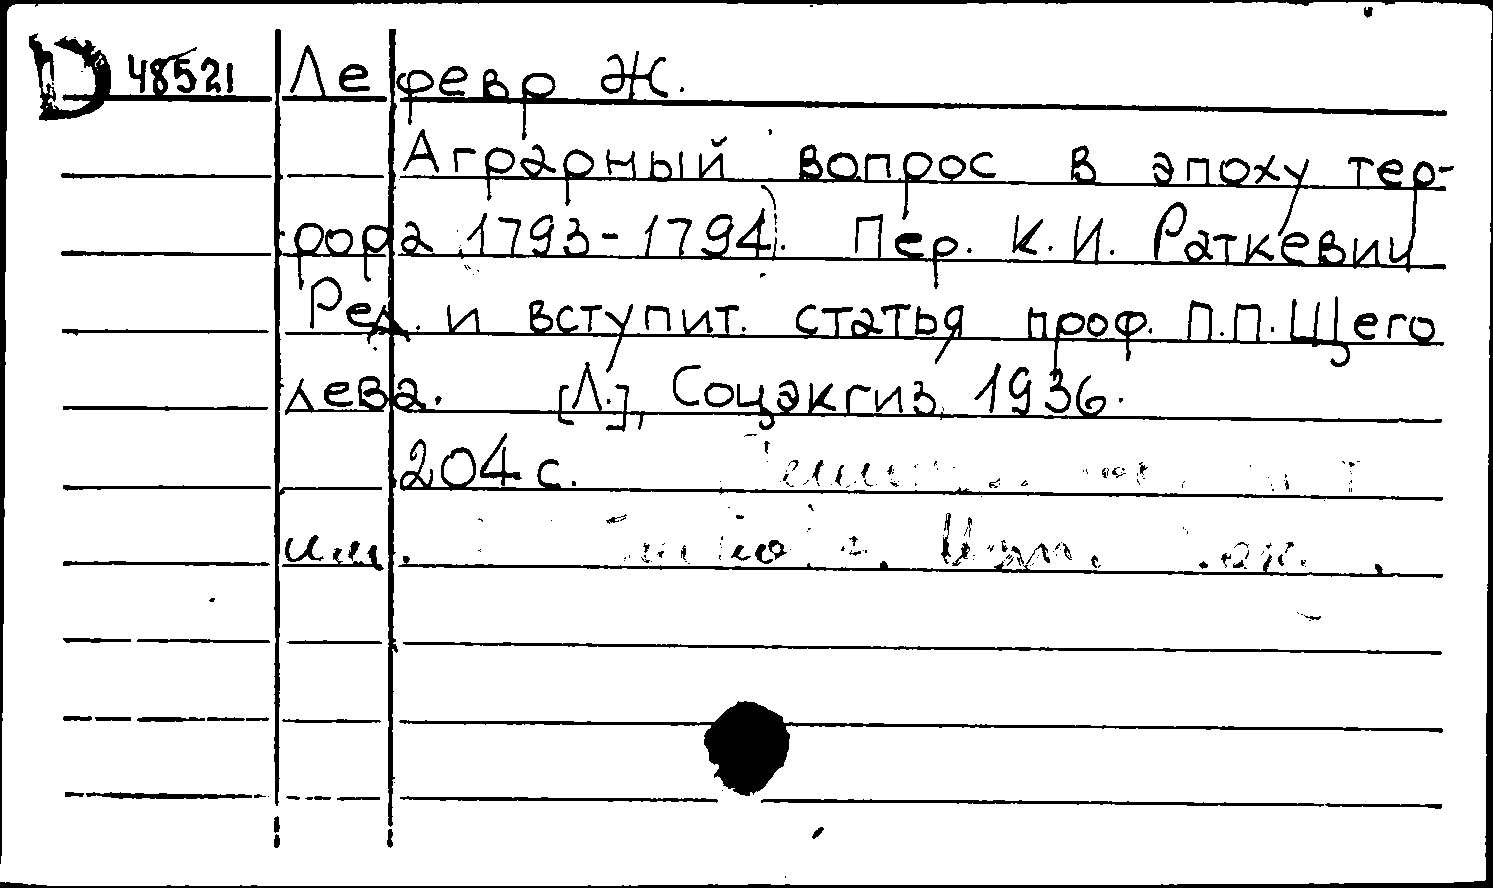 D 48521 Лефевр Ж.
Аграрный вопрос в эпоху тер-
рора 1793-1794). Пер. К.И. Раткевич
Ред. и вступит. статья проф. П.П. Щего
лева. [Л.], Соцэкгиз, 1936.
204 с.
им.